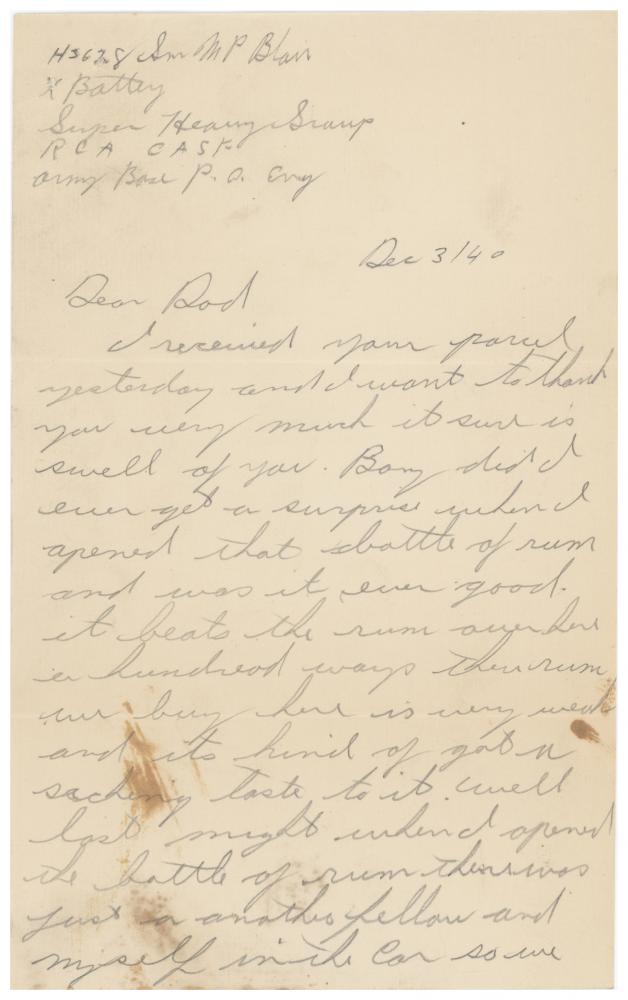 H3678 Gnr M P Blair
X Battey
Super Heavy Group
R C A C A S F
Army Base P. O. Eng
Dec 3/40
Dear Dad
I received your parcel
yesterday and I want to thank
you very much it sure is
swell of you. Boy did I
ever get a surprise when I
opened that bottle of rum
and was it ever good.
it beats the rum over here
a hundred ways the rum
we buy here is very weak
and its kind of got a
taste to it. well
last night when I opened
the bottle of rum there was
just a another fellow and
myself in the car so we